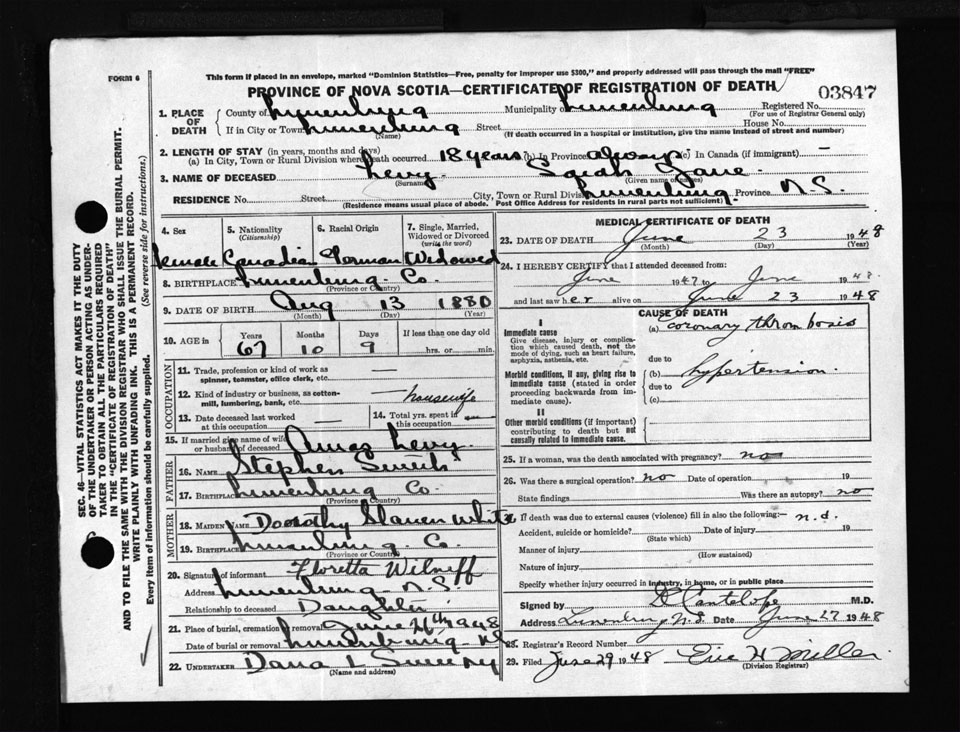 FORM 6
This form if placed in an envelope, marked "Dominion Statistics—Free, penalty for improper use $300," and properly addressed will pass through the mail "FREE"
PROVINCE OF NOVA SCOTIA—CERTIFICATE OF REGISTRATION OF DEATH
03847
1. PLACE OF DEATH County of Lunenburg Municipality of Lunenburg Registered No.
(For use of Registrar General only)
If in City or Town Lunenburg Street House No.
(Name) (If death occurred in a hospital or institution, give the name instead of street and number)
2. LENGTH OF STAY (in years, months and days)
(a) In City, Town or Rural Division where death occurred 18 years (b) In Province always (c) In Canada (if immigrant) —
3. NAME OF DECEASED Levy Sarah Jane
(Surname) (Given name or names)
RESIDENCE No. Street City, Town or Rural Division Lunenburg Province N.S.
(Residence means usual place of abode. Post Office Address for residents in rural parts not sufficient)
4. Sex 5. Nationality (Citizenship) 6. Racial Origin 7. Single, Married, Widowed or Divorced (write the word)
Female Canadian German Widowed
8. BIRTHPLACE Lunenburg Co.
(Province or Country)
9. DATE OF BIRTH Aug 13 1880
(Month) (Day) (Year)
10. AGE in Years Months Days If less than one day old
67 10 9 hrs. or min.
OCCUPATION
11. Trade, profession or kind of work as spinner, teamster, office clerk, etc. —
12. Kind of industry or business, as cotton-mill, lumbering, bank, etc. — housewife
13. Date deceased last worked at this occupation — 14. Total yrs. spent in this occupation —
15. If married give name of wife or husband of deceased Amos Levy
FATHER
16. NAME Stephen
17. BIRTHPLACE Lunenburg Co.
(Province or Country)
MOTHER
18. MAIDEN NAME Dorothy White
19. BIRTHPLACE Lunenburg. Co.
(Province or Country)
20. Signature of informant Floretta
Address Lunenburg N.S.
Relationship to deceased Daughter
21. Place of burial, cremation or removal June 26th 1948
Date of burial or removal Lunenburg NS
22. UNDERTAKER Dana L Sweeny
(Name and address)
MEDICAL CERTIFICATE OF DEATH
23. DATE OF DEATH June 23 1948
(Month) (Day) (Year)
24. I HEREBY CERTIFY that I attended deceased from:
June 1947 to June 1948.
and last saw her alive on June 23 1948
CAUSE OF DEATH
I
Immediate cause
Give disease, injury or complication which caused death, not the mode of dying, such as heart failure, asphyxia, asthenia, etc.
(a) coronary thrombosis
due to
Morbid conditions, if any, giving rise to immediate cause (stated in order proceeding backwards from immediate cause).
(b) hypertension.
due to
(c)
II
Other morbid conditions (if important) contributing to death but not causally related to immediate cause.
25. If a woman, was the death associated with pregnancy? no
26. Was there a surgical operation? no Date of operation 19
State findings Was there an autopsy? no
27. If death was due to external causes (violence) fill in also the following:— n.d.
Accident, suicide or homicide? Date of injury 19
(State which)
Manner of injury
(How sustained)
Nature of injury
Specify whether injury occurred in industry, in home, or in public place
Signed by D Cantelope M.D.
Address Lunenburg N.S. Date June 27 1948
28. Registrar's Record Number
29. Filed June 29 1948 Eric H Miller
(Division Registrar)
SEC. 46—VITAL STATISTICS ACT MAKES IT THE DUTY
OF THE UNDERTAKER OR PERSON ACTING AS UNDER-
TAKER TO OBTAIN ALL THE PARTICULARS REQUIRED
IN THE "CERTIFICATE OF REGISTRATION OF DEATH"
AND TO FILE THE SAME WITH THE DIVISION REGISTRAR WHO SHALL ISSUE THE BURIAL PERMIT.
WRITE PLAINLY WITH UNFADING INK. THIS IS A PERMANENT RECORD.
Every item of information should be carefully supplied. (See reverse side for instructions.)